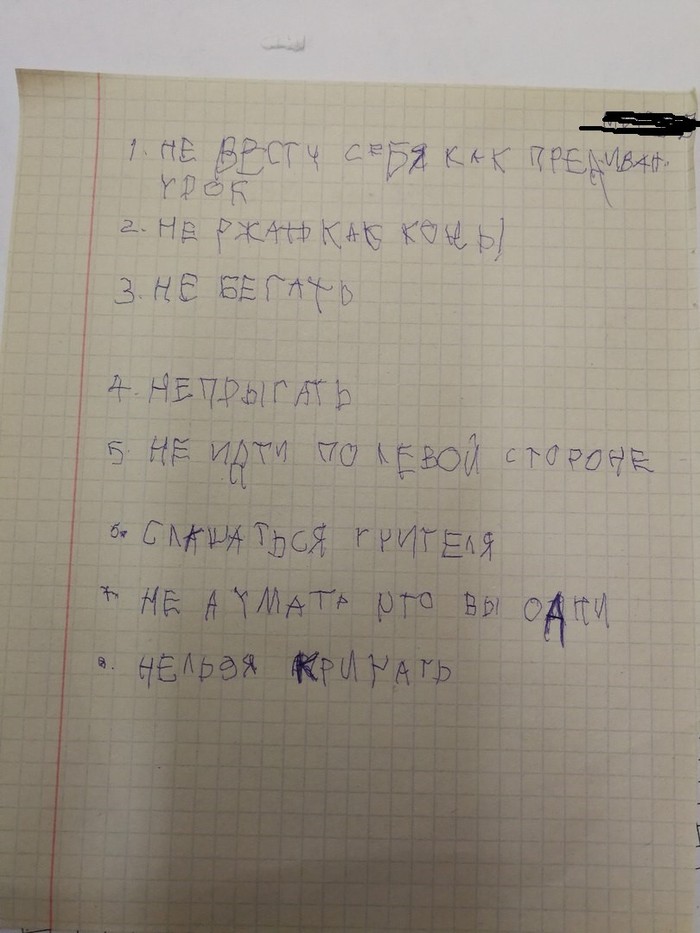 1. НЕ ВЕСТИ СЕБЯ КАК
УРОК
2. НЕ КАК
3. НЕ БЕГАТЬ
4. НЕПРЫГАТЬ
5 НЕ ИДТИ ПО ЛЕВОЙ СТОРОНЕ
6. УЧИТЕЛЯ
7. НЕ ДУМАТЬ ЧТО ВЫ ОДНИ
8. НЕЛЬЗЯ КРИЧАТЬ